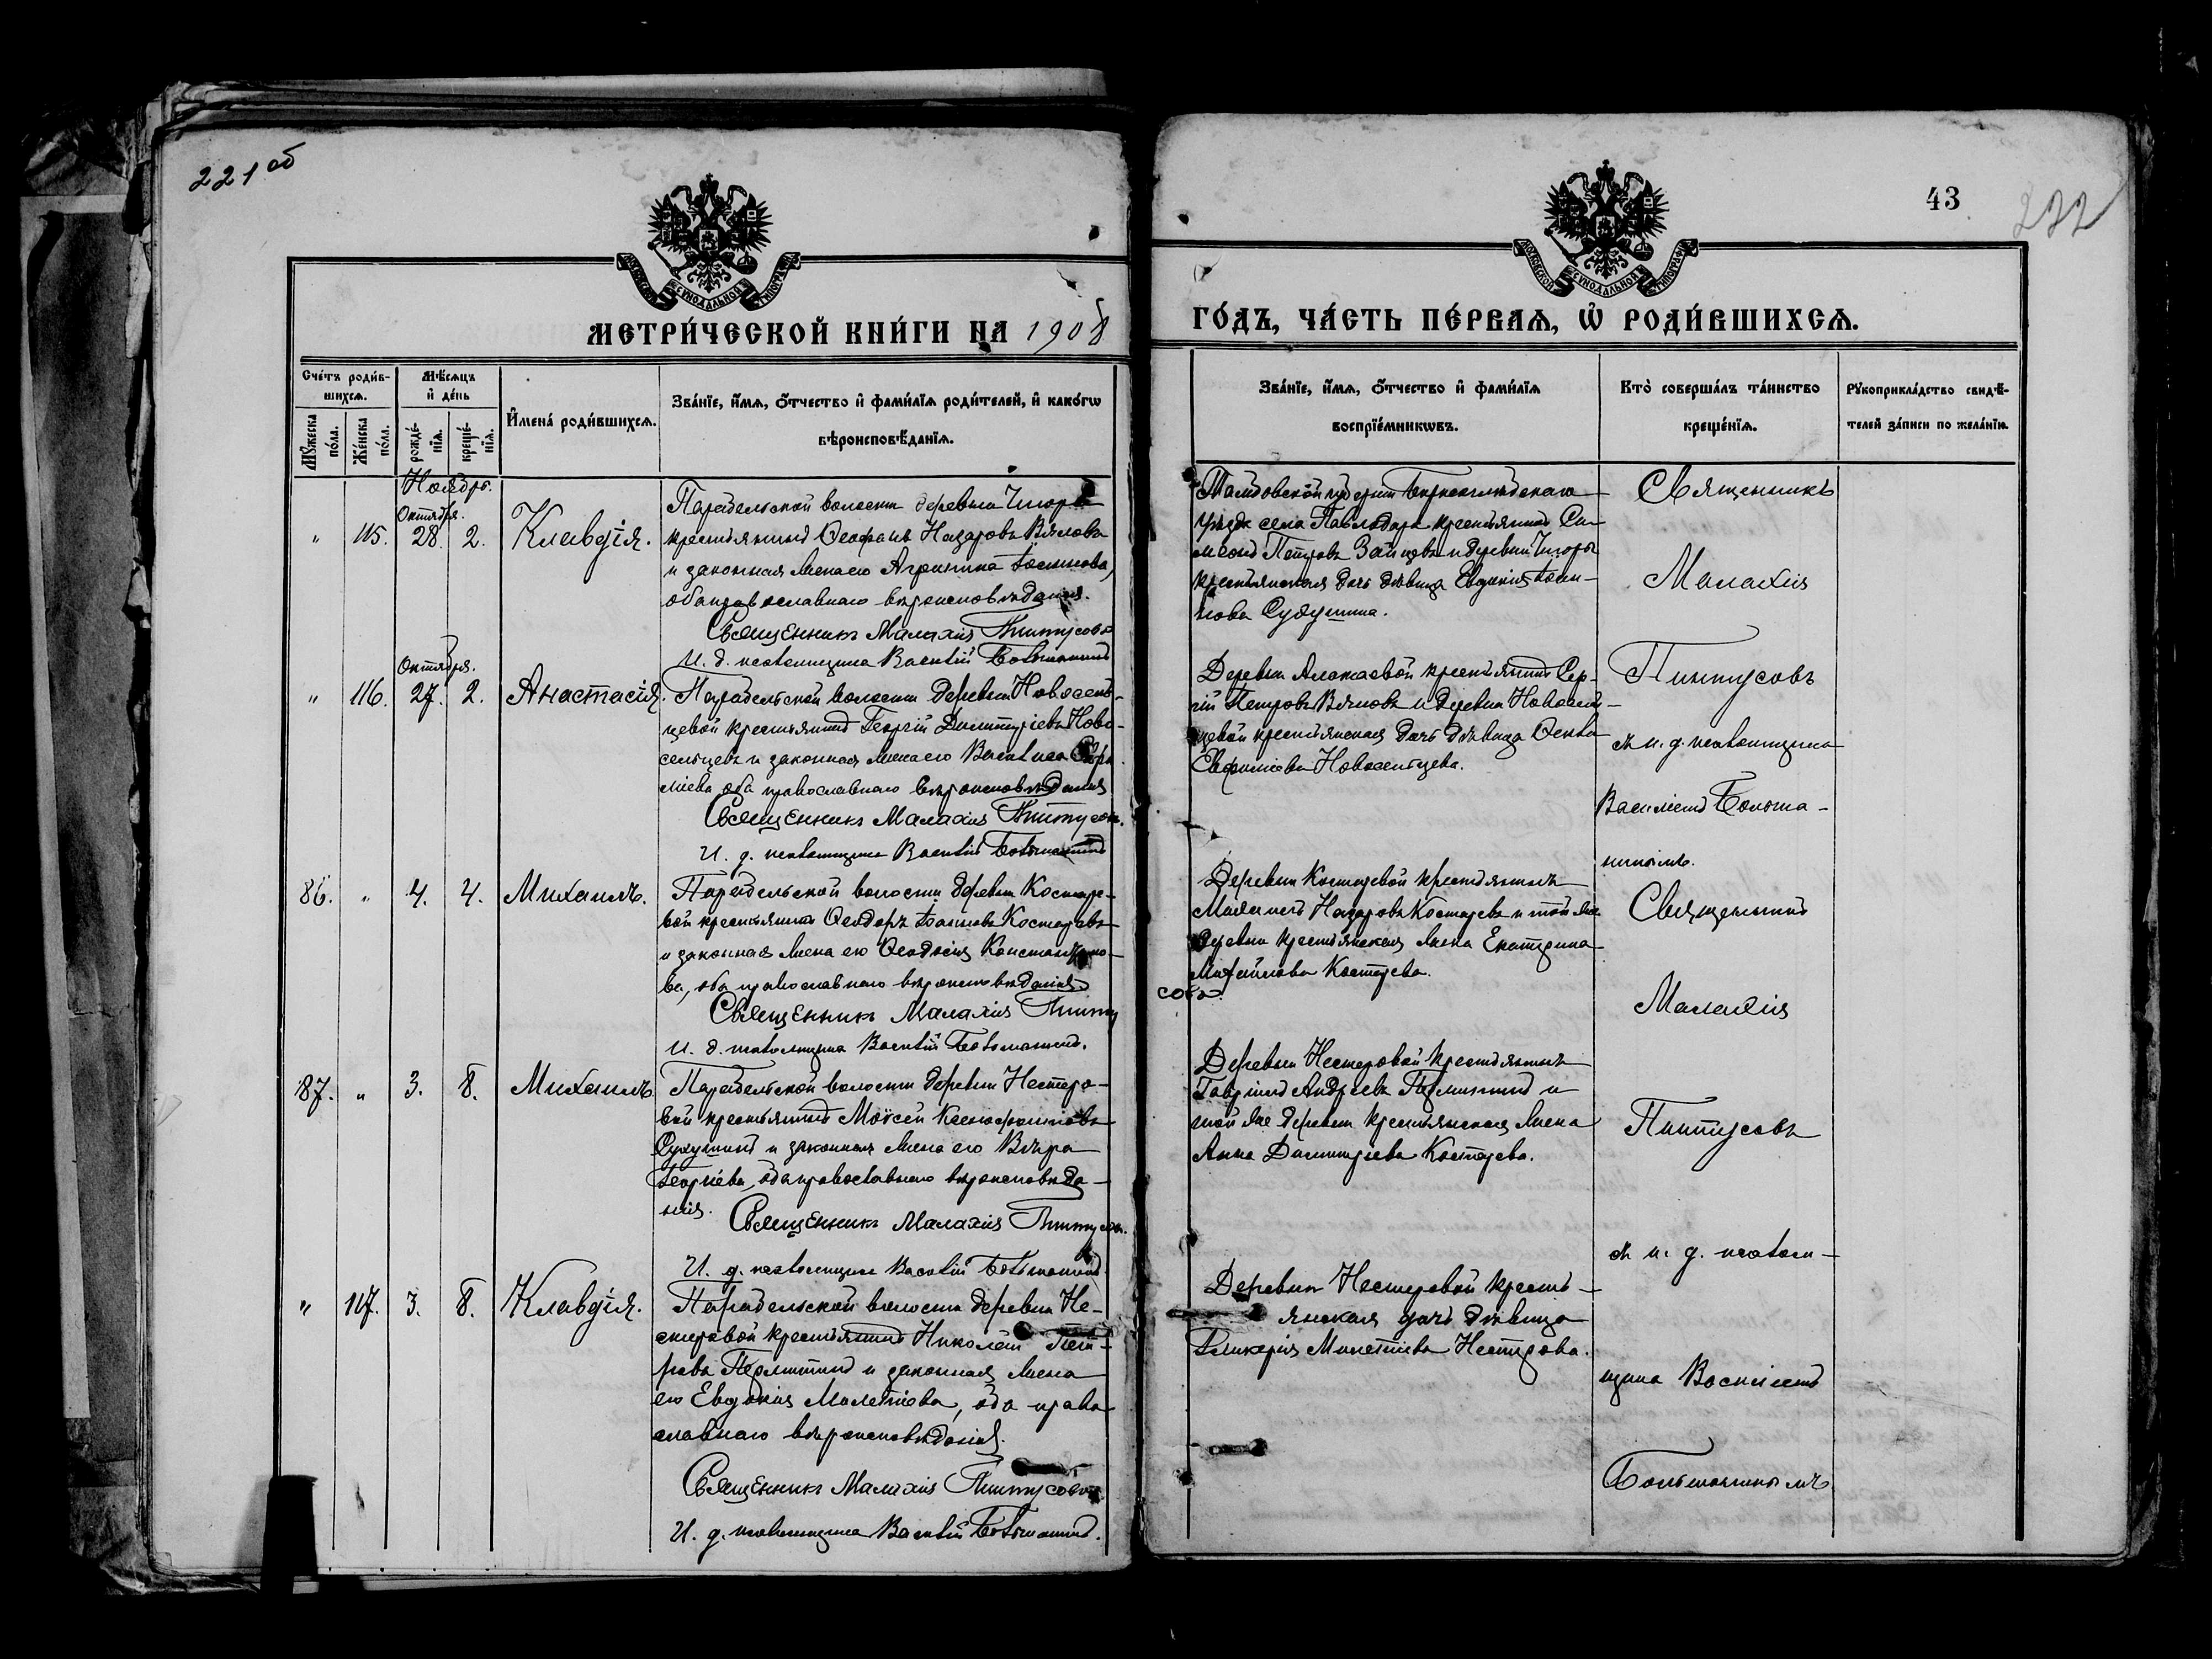 221 об
43
222
МОСКОВСКОЙ СѴНОДАЛЬНОЙ ТИПОГРАФІИ
МОСКОВСКОЙ СѴНОДАЛЬНОЙ ТИПОГРАФІИ
МЕТРИ́ЧЕСКОЙ КНИ́ГИ НА 1908
ГО́ДЪ, ЧА́СТЬ ПЕ́РВАѦ, Ѡ҆ РОДИ́ВШИХСѦ.
Сче́тъ роди́в-
шихсѧ.
Мꙋ́жеска по́ла.
Же́нска по́ла.
Мѣ́сѧцъ
и҆ де́нь
рожде́-
нїѧ.
креще́-
нїѧ.
И҆мена̀ роди́вшихсѧ.
Зва́нїе, и҆́мѧ, ѻ҆́тчество и҆ фами́лїѧ роди́телей, и҆ како́гѡ
вѣроисповѣ́данїѧ.
Зва́нїе, и҆́мѧ, ѻ҆́тчество и҆ фами́лїѧ
воспрїе́мникѡвъ.
Кто̀ соверша́лъ та́инство
креще́нїѧ.
Рꙋкоприкла́дство свидѣ́-
телей за́писи по жела́нїю.
Ноябрь.
Октября.
" 115. 28. 2. Клавдія.
Парабельской волости деревни Чигоры
крестьянинъ Ѳеофанъ Назаровъ Вяловъ
и законная жена его Агрипина Іоаннова,
оба православнаго вѣроисповѣданія.
Священникъ Малахія Пинтусовъ
И. д. псаломщика Василій Большанинъ
уѣзда села Павлодара крестьянинъ Си-
меонъ Петровъ Зайцевъ и деревни Чигоры
крестьянская дочь дѣвица Евдокія Іоан-
нова Сухушина.
Священникъ
Малахія
Октября.
" 116. 27. 2. Анастасія.
Парабельской волости деревни Новосель-
цевой крестьянинъ Георгій Димитріевъ Ново-
сельцевъ и законная жена его Василиса
оба православнаго вѣроисповѣданія
Священникъ Малахія Пинтусовъ.
И. д. псаломщика Василій Большанинъ
Деревни крестьянинъ Сер-
гій Петровъ Вяловъ и деревни Новосель-
цевой крестьянская дочь дѣвица
Евфиміева Новосельцева.
Пинтусовъ
съ и. д. псаломщика
Василіемъ Больша-
нинымъ.
86. " 4. 4. Михаилъ.
Парабельской волости деревни Костаре-
вой крестьянинъ Ѳеодоръ Іоанновъ Костаревъ
и законная жена его Ѳеодосія Константино-
ва, оба православнаго вѣроисповѣданія
Священникъ Малахія Пинту
совъ.
И. д. псаломщика Василій Большанинъ.
Деревни Костаревой крестьянинъ
Назаровъ Костаревъ и той же
деревни крестьянская жена Екатерина
Михайлова Костарева.
Священникъ
Малахія
87. " 3. 8. Михаилъ
Парабельской волости деревни Нестеро-
вой крестьянинъ Моѵсей Ксенофонтовъ
Сухушинъ и законная жена его Вѣра
Георгіева, оба православнаго вѣроисповѣда-
нія.
Священникъ Малахія Пинтусовъ.
И. д. псаломщика Василій Большанинъ.
Деревни Нестеровой крестьянинъ
Гавріилъ Андреевъ Перемитинъ и
той же деревни крестьянская жена
Анна Димитріева Костарева.
Пинтусовъ
съ и. д. псалом-
" 117. 3. 8. Клавдія.
Парабельской волости деревни Не-
стеровой крестьянинъ Николай Пет-
ровъ Перемитинъ и законная жена
его Евдокія Милетіева, оба право-
славнаго вѣроисповѣданія.
Священникъ Малахія Пинтусовъ.
И. д. псаломщика Василій Большанинъ.
Деревни Нестеровой кресть-
янская дочь дѣвица
Гликерія Милетіева Нестерова.
щика Василіемъ
Большанинымъ.